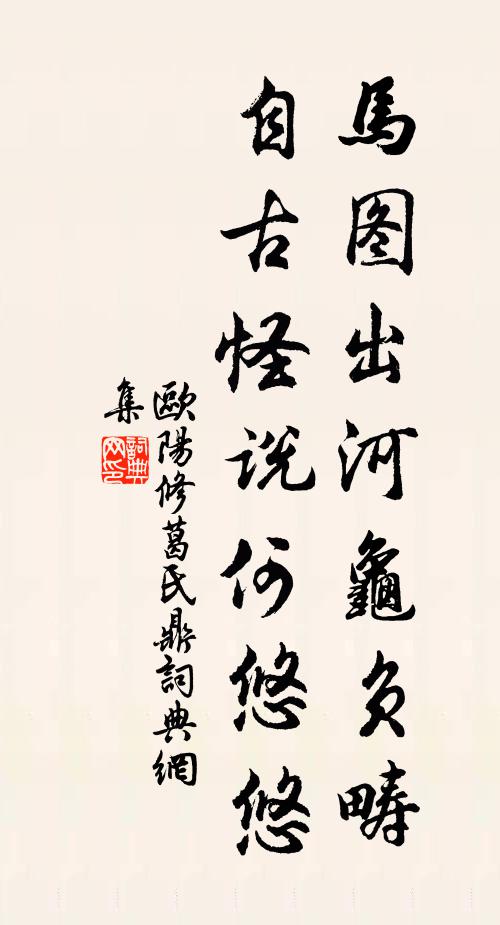 馬图出河龜负畴
自古怪说何悠悠
歐陽修葛氏鼎詞典網
集
詞典
网印